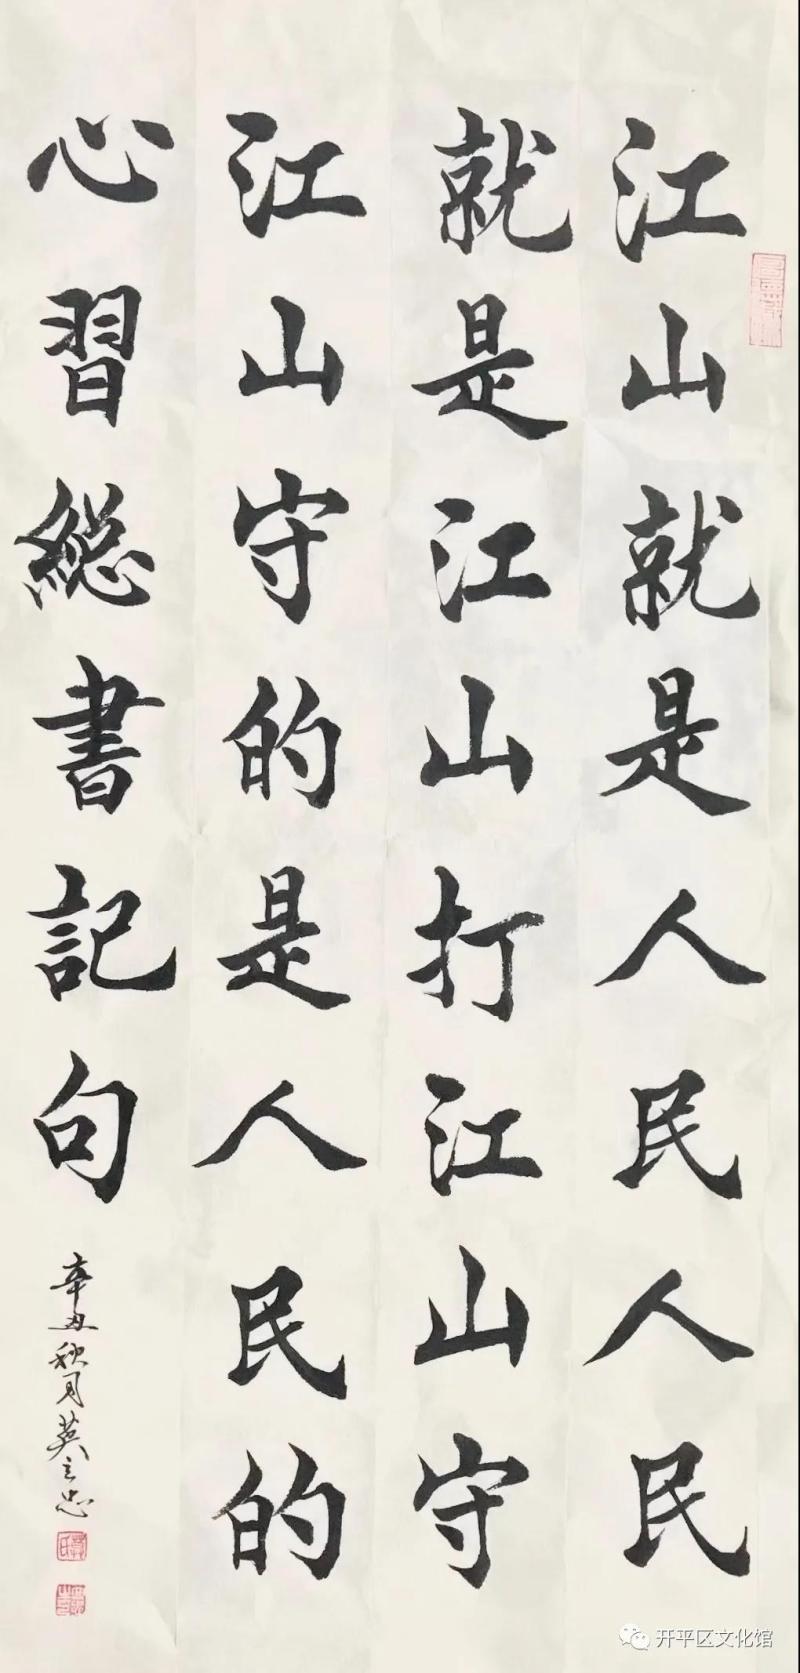 江山就是人民人民
就是江山打江山守
江山守的是人民的
心習総書記句
辛丑秋月
开平区文化馆